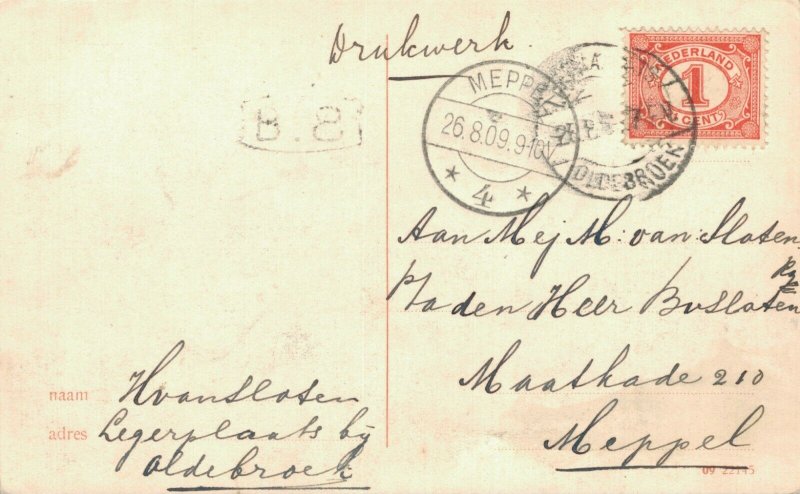 Drukwerk.
NEDERLAND
1
CENT
MEPPEL
26.8.09.9-10V
4
OLDEBROEK
B.S
Aan Mej M: van Sloten
P/a den Heer B v Sloten
Maatkade 210
Meppel
naam H van Sloten
adres Legerplaats bij
Oldebroek
09 22145